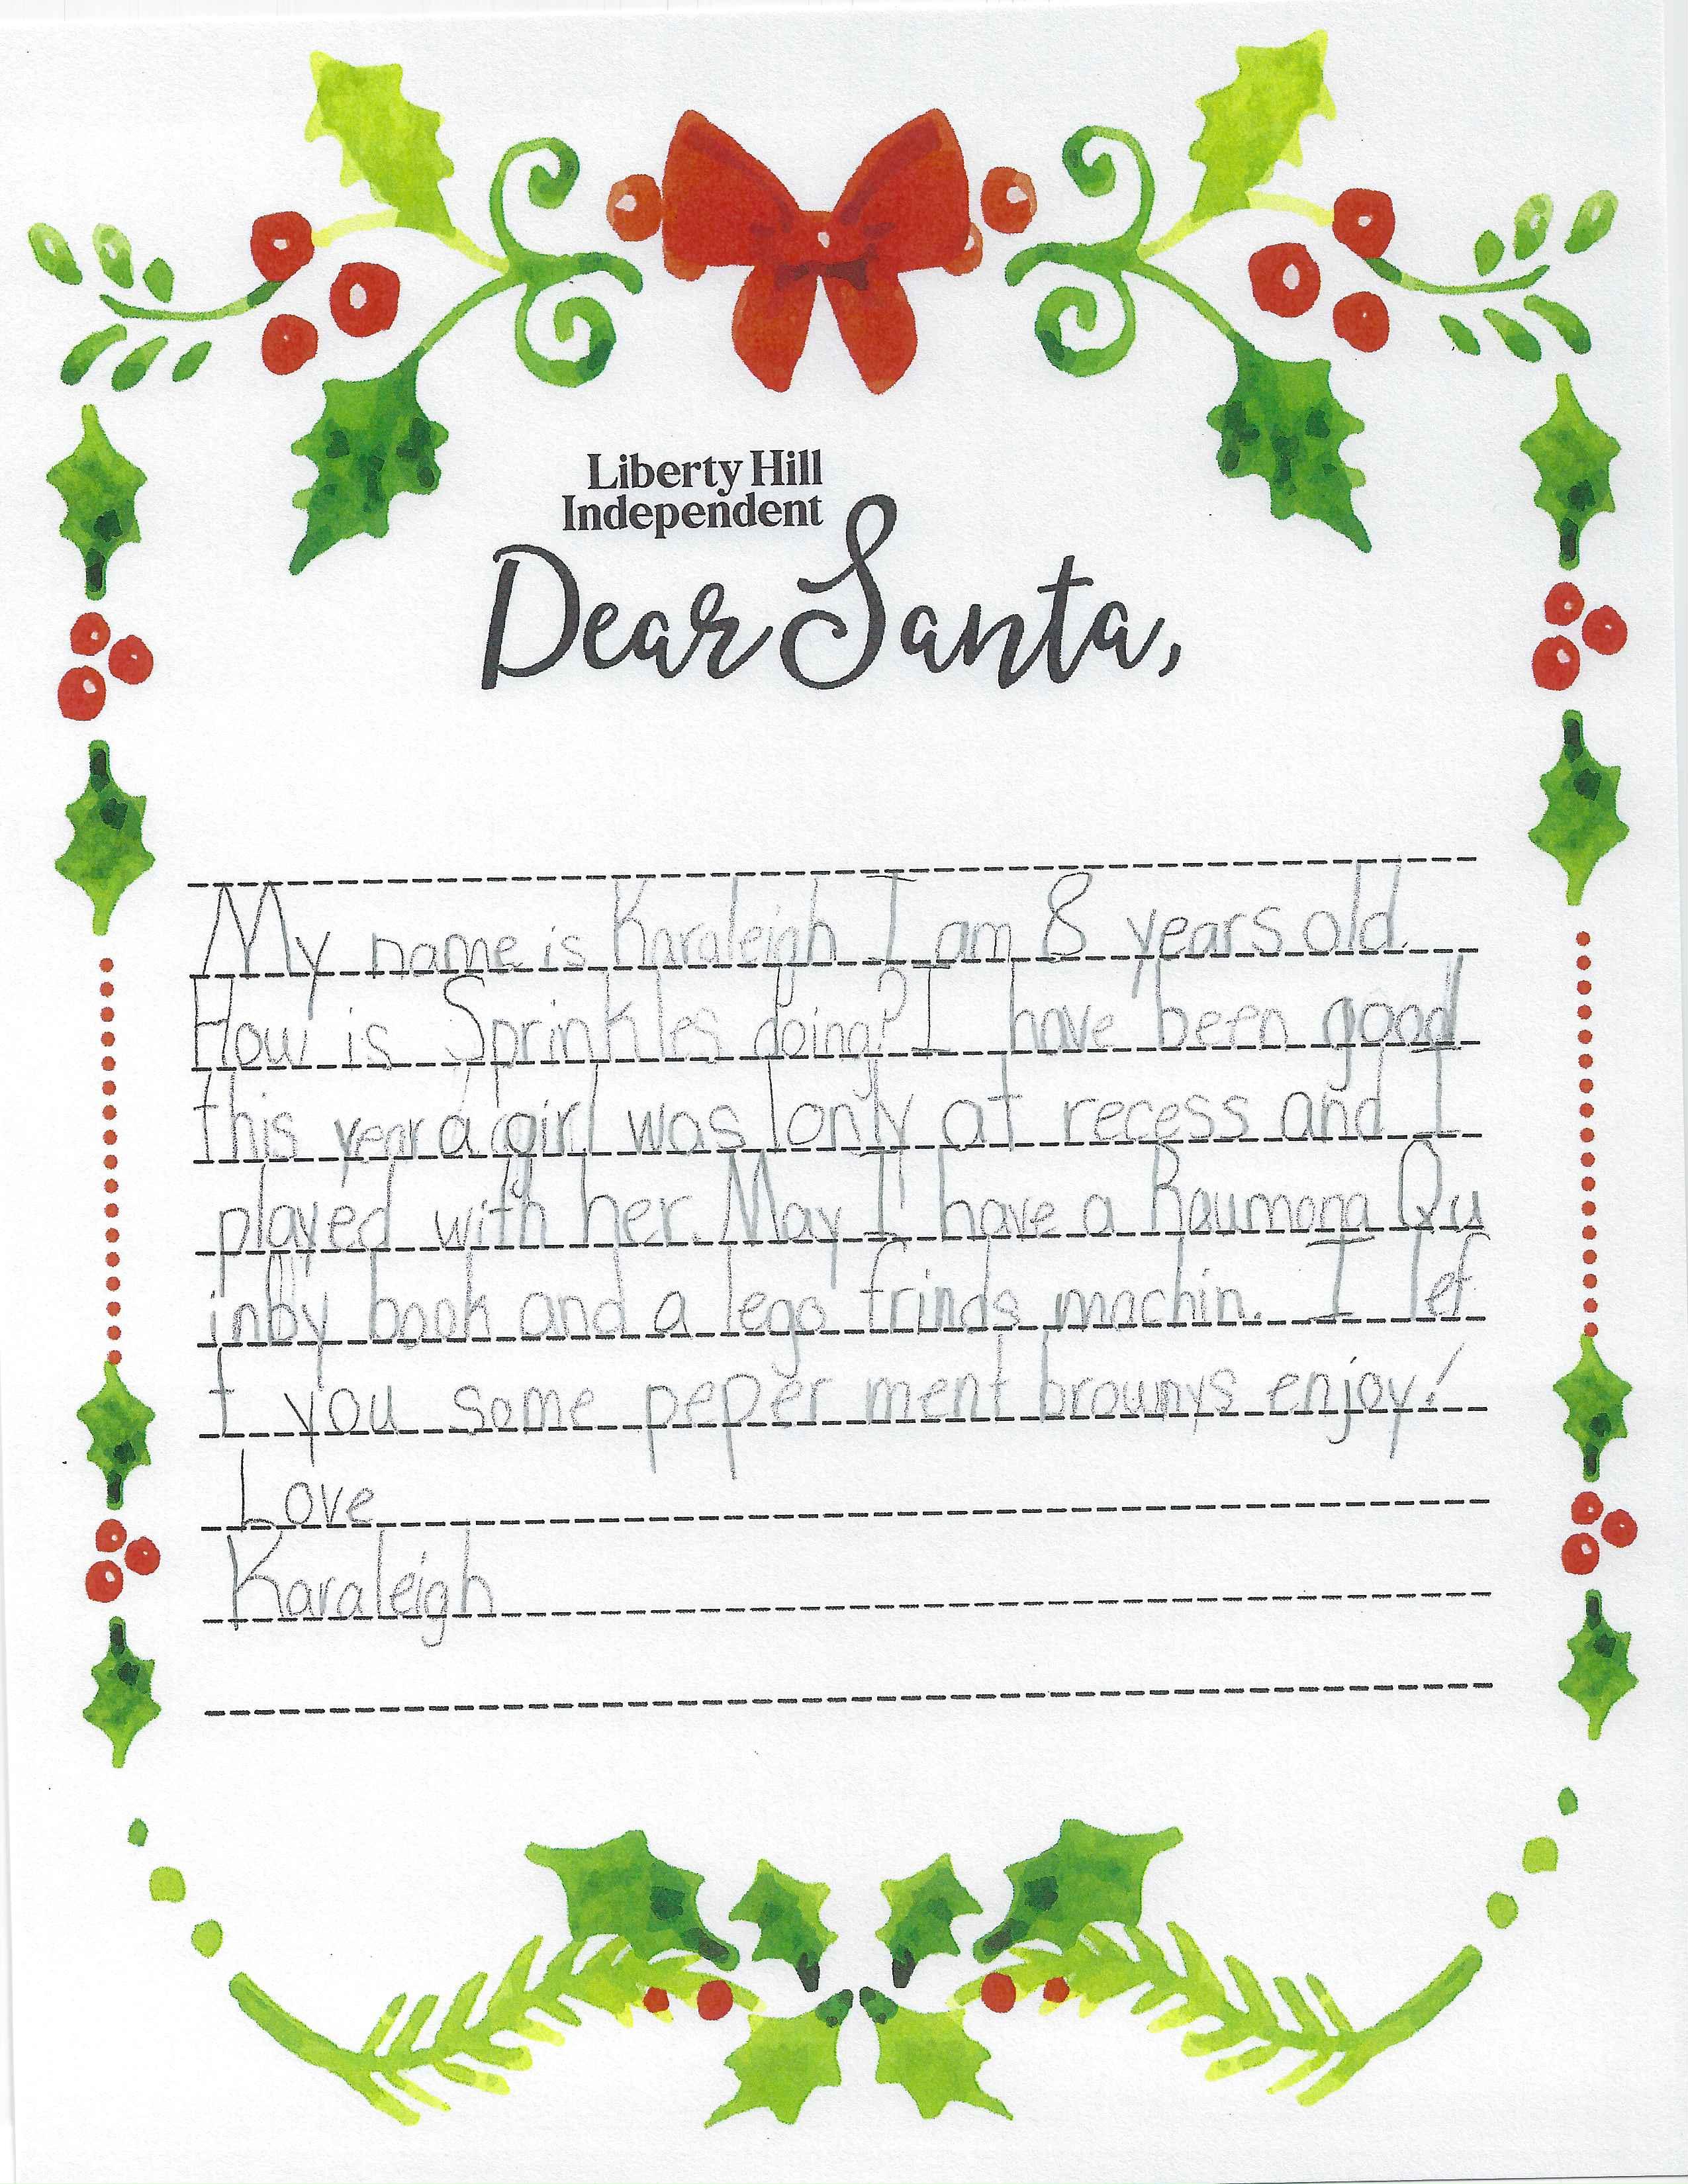 Liberty Hill
Independent
Dear Santa,
My name is Karaleigh I am 8 years old.
How is Sprinkles doing? I have been good
this year a girl was lonly at recess and I
played with her. May I have a Raumona Qu
inby book and a lego frinds machin. I lef
t you some peper ment brownys enjoy!
Love
Karaleigh